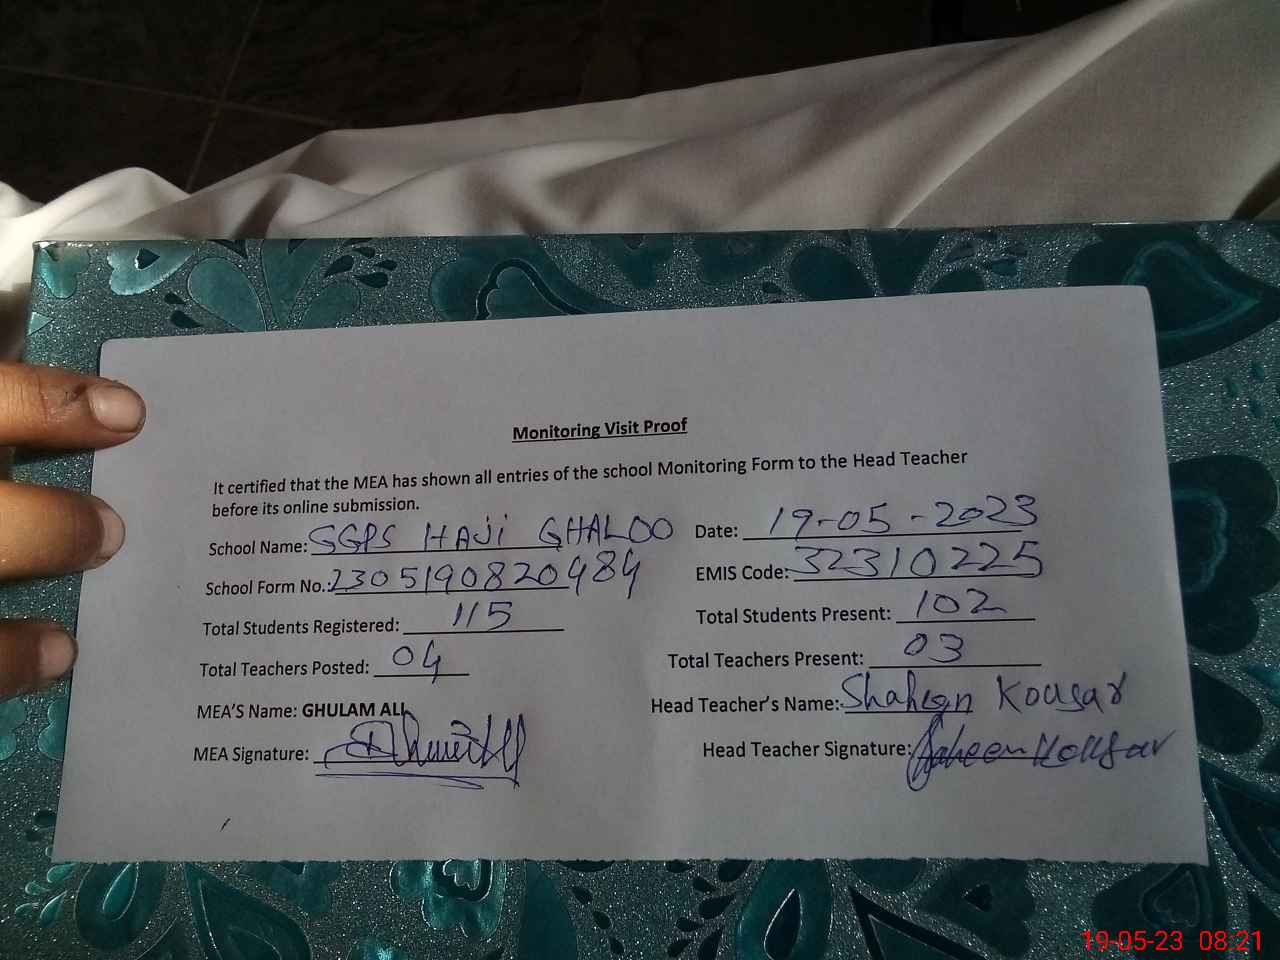 Monitoring Visit Proof
It certified that the MEA has shown all entries of the school Monitoring Form to the Head Teacher
before its online submission.
School Name: GGPS HAJi GHALOO Date: 19-05-2023
School Form No.: 2305190820484 EMIS Code: 32310225
Total Students Registered: 115 Total Students Present: 102
Total Teachers Posted: 04 Total Teachers Present: 03
MEA'S Name: GHULAM ALI Head Teacher's Name: Shaheen Kousar
MEA Signature: Head Teacher Signature: Shaheen Kousar
19-05-23 08:21